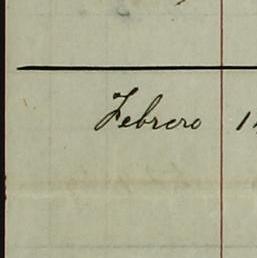 Febrero 1